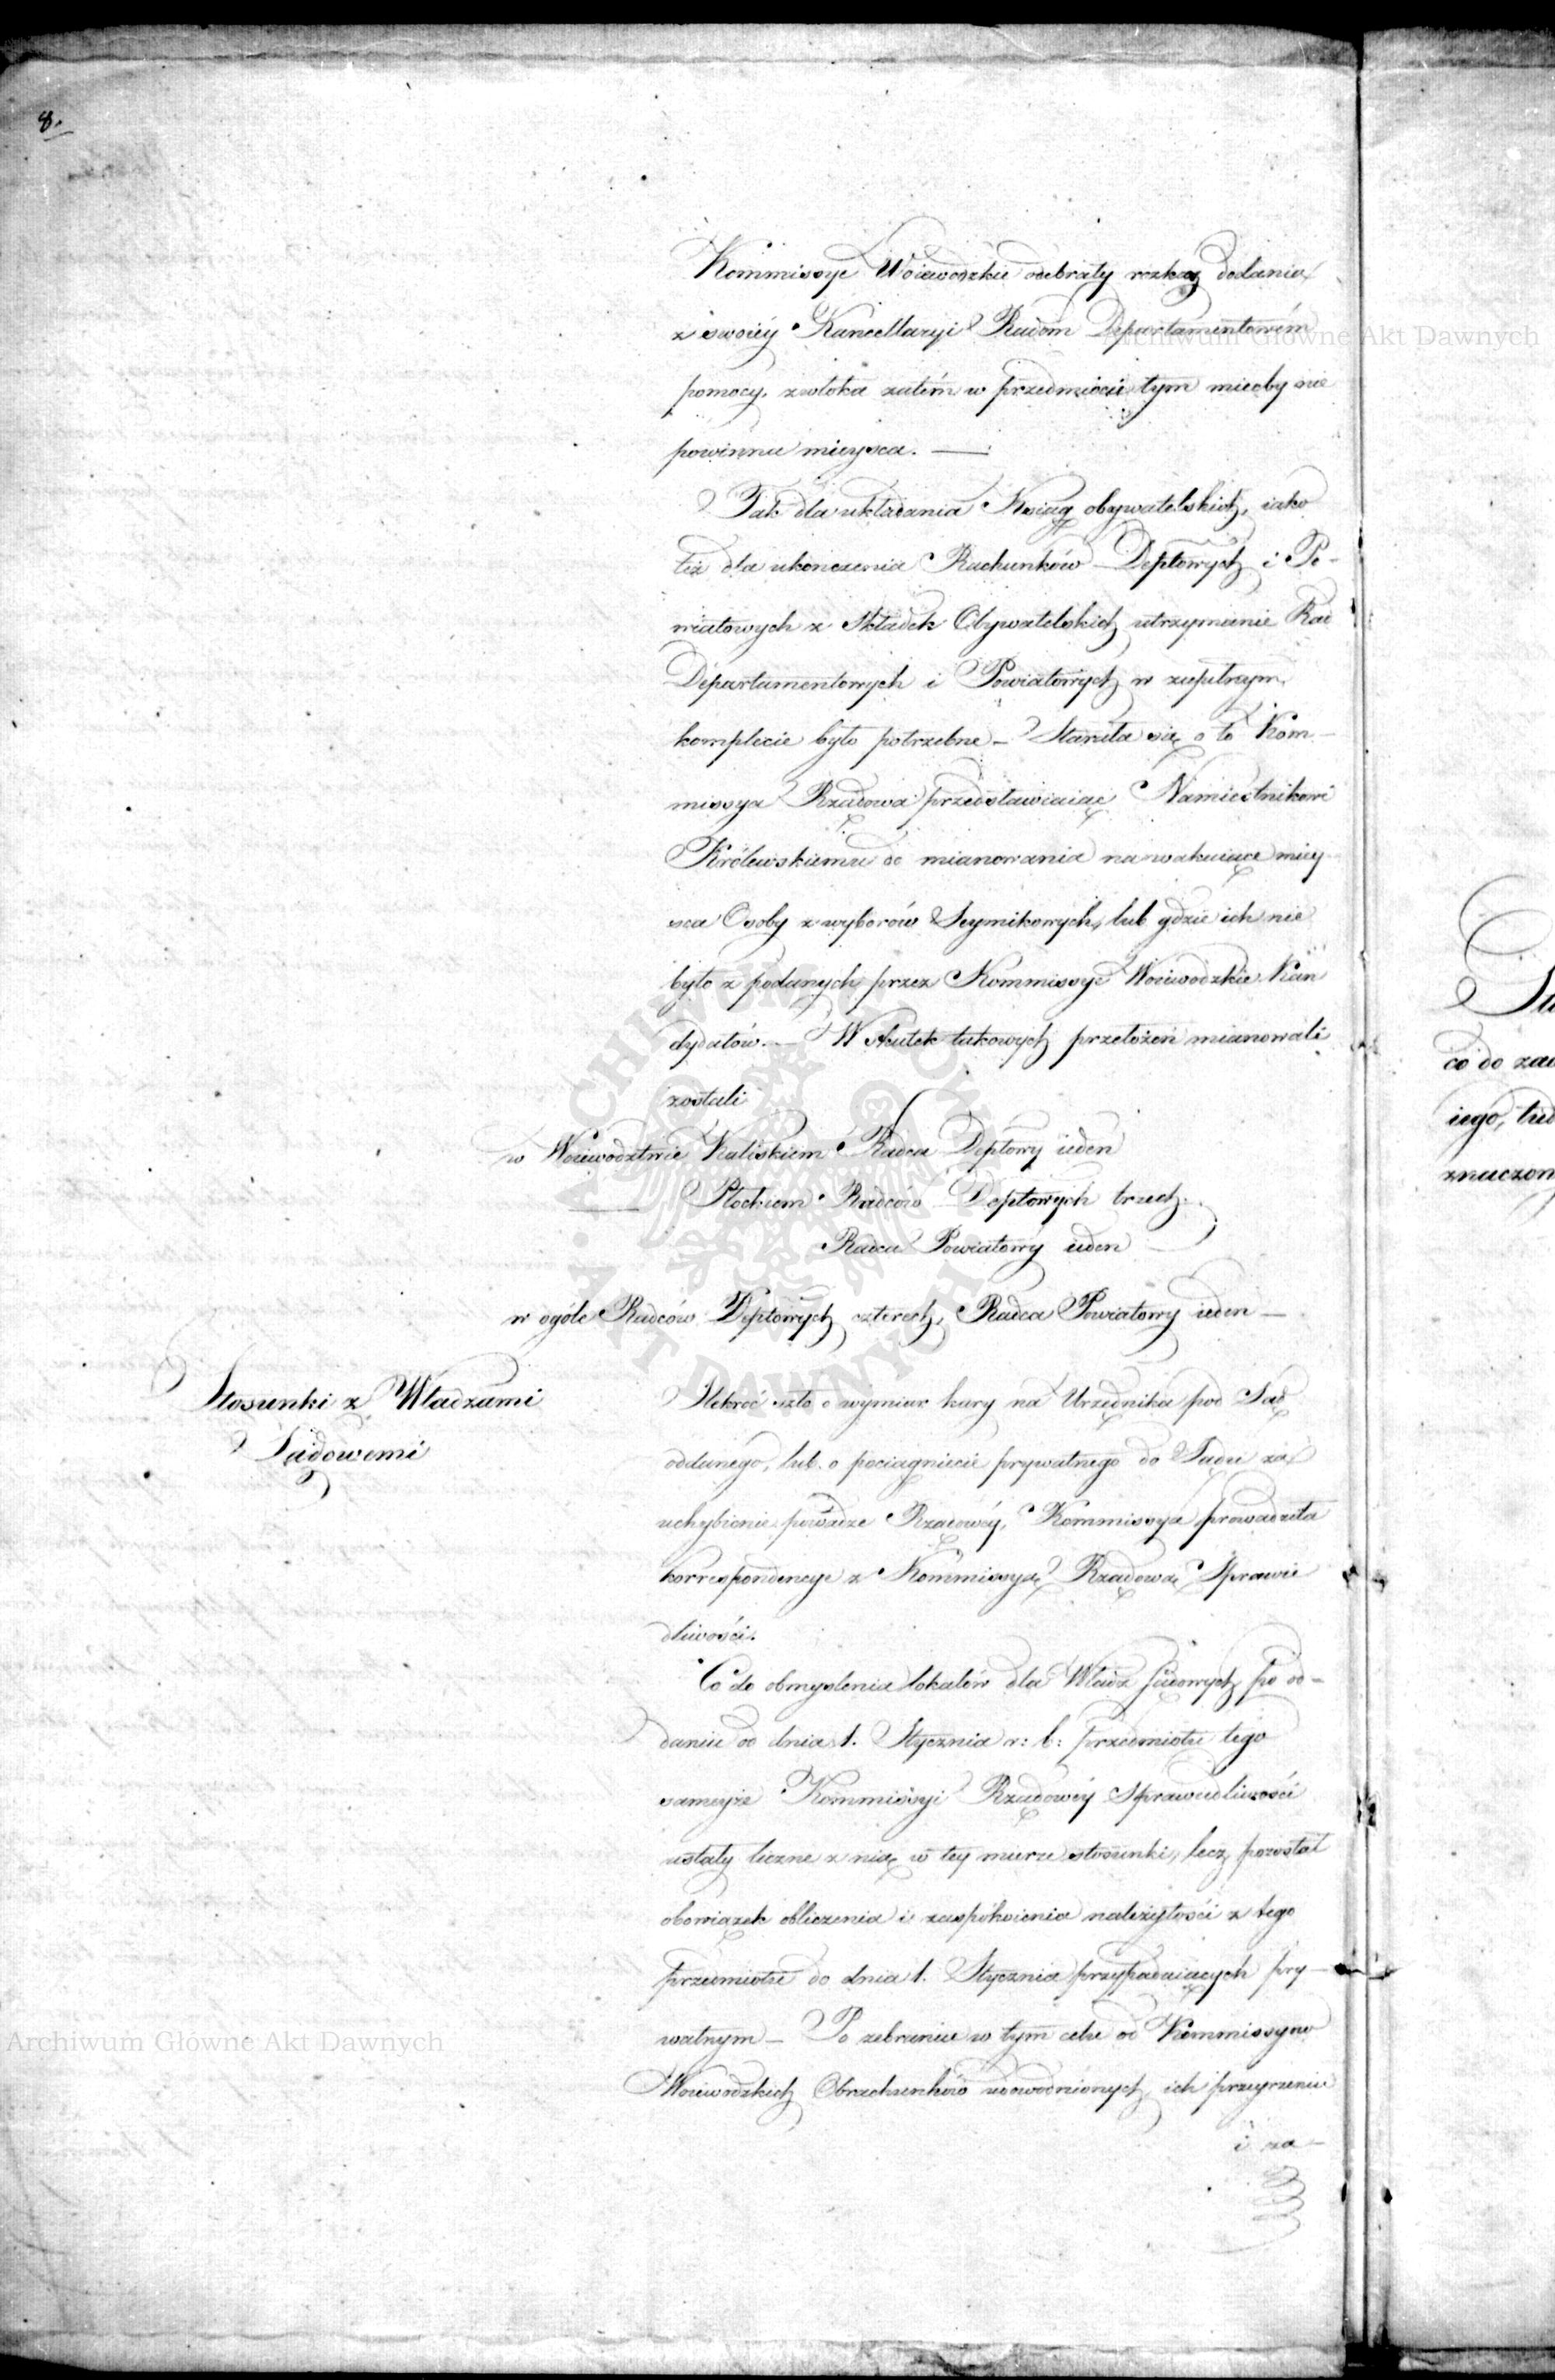 8.
Kommissye Woiewodzkie odebrały rozkaz dodania
z swoiéy Kancellaryi Radom Departamentowém
pomocy, zwłoka zatém w przedmiocie tym miećby nie
powinna mieysca. —
Tak dla układania Xsiąg obywatelskich, iako
też dla ukonczenia Rachunków Deptowych i Po-
wiatowych z Składek Obywatelskich utrzymanie Rad
Departamentowych i Powiatowych w zupełnym
komplecie było potrzebne — Starała się o to Kom-
missya Rządowa przedstawiaiąc Namiestnikowi
Królewskiemu do mianowania na wakuiące miey-
sca Osoby z wyborów Seymikowych, lub gdzie ich nie
było z podanych przez Kommissye Woiewodzkie Kan
dydatów. — W skutek takowych przełożeń mianowali
zostali
w Woiewodztwie Kaliskiem Radca Deptowy ieden
— Płockiem Radców Deptowych trzech.
Radca Powiatowy ieden —
w ogóle Radców Deptowych czterech, Radca Powiatowy ieden —
Stosunki z Władzami
Sądowemi
Ilekroć szło o wymiar kary na Urzędnika pod Sąd
oddanego, lub o pociągniecie prywatnego do Sądu za
uchybienie powadze Rządowéy, Kommissya prowadziła
korrespondencye z Kommissyą Rządową Sprawie
dliwości.
Co do obmyślenia lokalów dla Władz Sądowych po od-
daniu od dnia 1. Stycznia r: b: przedmiotu tego
sameyże Kommissyi Rządowéy Sprawiedliwości
ustały liczne z nią w tey mierze stosunki, lecz pozostał
obowiązek obliczenia i zaspokoienia należytości z tego
przedmiotu do dnia 1. Stycznia przypadaiących pry-
watnym — Po zebraniu w tym celu od Kommissyow
Woiewodzkich Obrachunków udowodnionych, ich przeyrzeniu
i za-
Su
co do zad
iego, tud
znaczon
Archiwum Główne Akt Dawnych
Archiwum Główne Akt Dawnych
ARCHIWUM GŁÓWNE AKT DAWNYCH